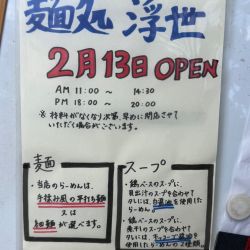 麺処 浮世
2月13日 OPEN
AM 11:00 ～ 14:30
PM 18:00 ～ 20:00
※ 材料がなくなり次第、早めに閉店させて
いただく場合がございます。
麺
・当店のらーめんは、
手揉み風の平打ち麺
又は
細麺が選べます。
スープ
・鶏ベースのスープに
貝出汁のスープを合わせ
タレには、白醤油を使用した
らーめん
・鶏ベースのスープに、
煮干しのスープを合わせて
タレには、
使用したらーめんの2種類。